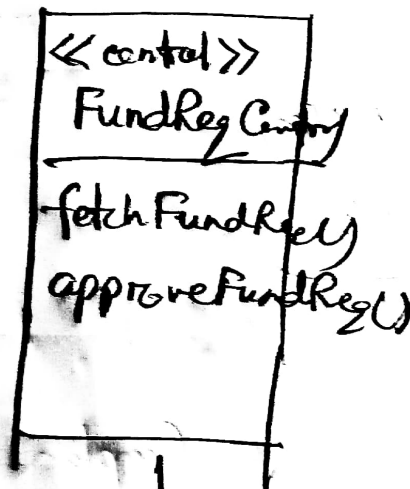 <<control>>
FundReqControl
fetchFundReq()
approveFundReq()